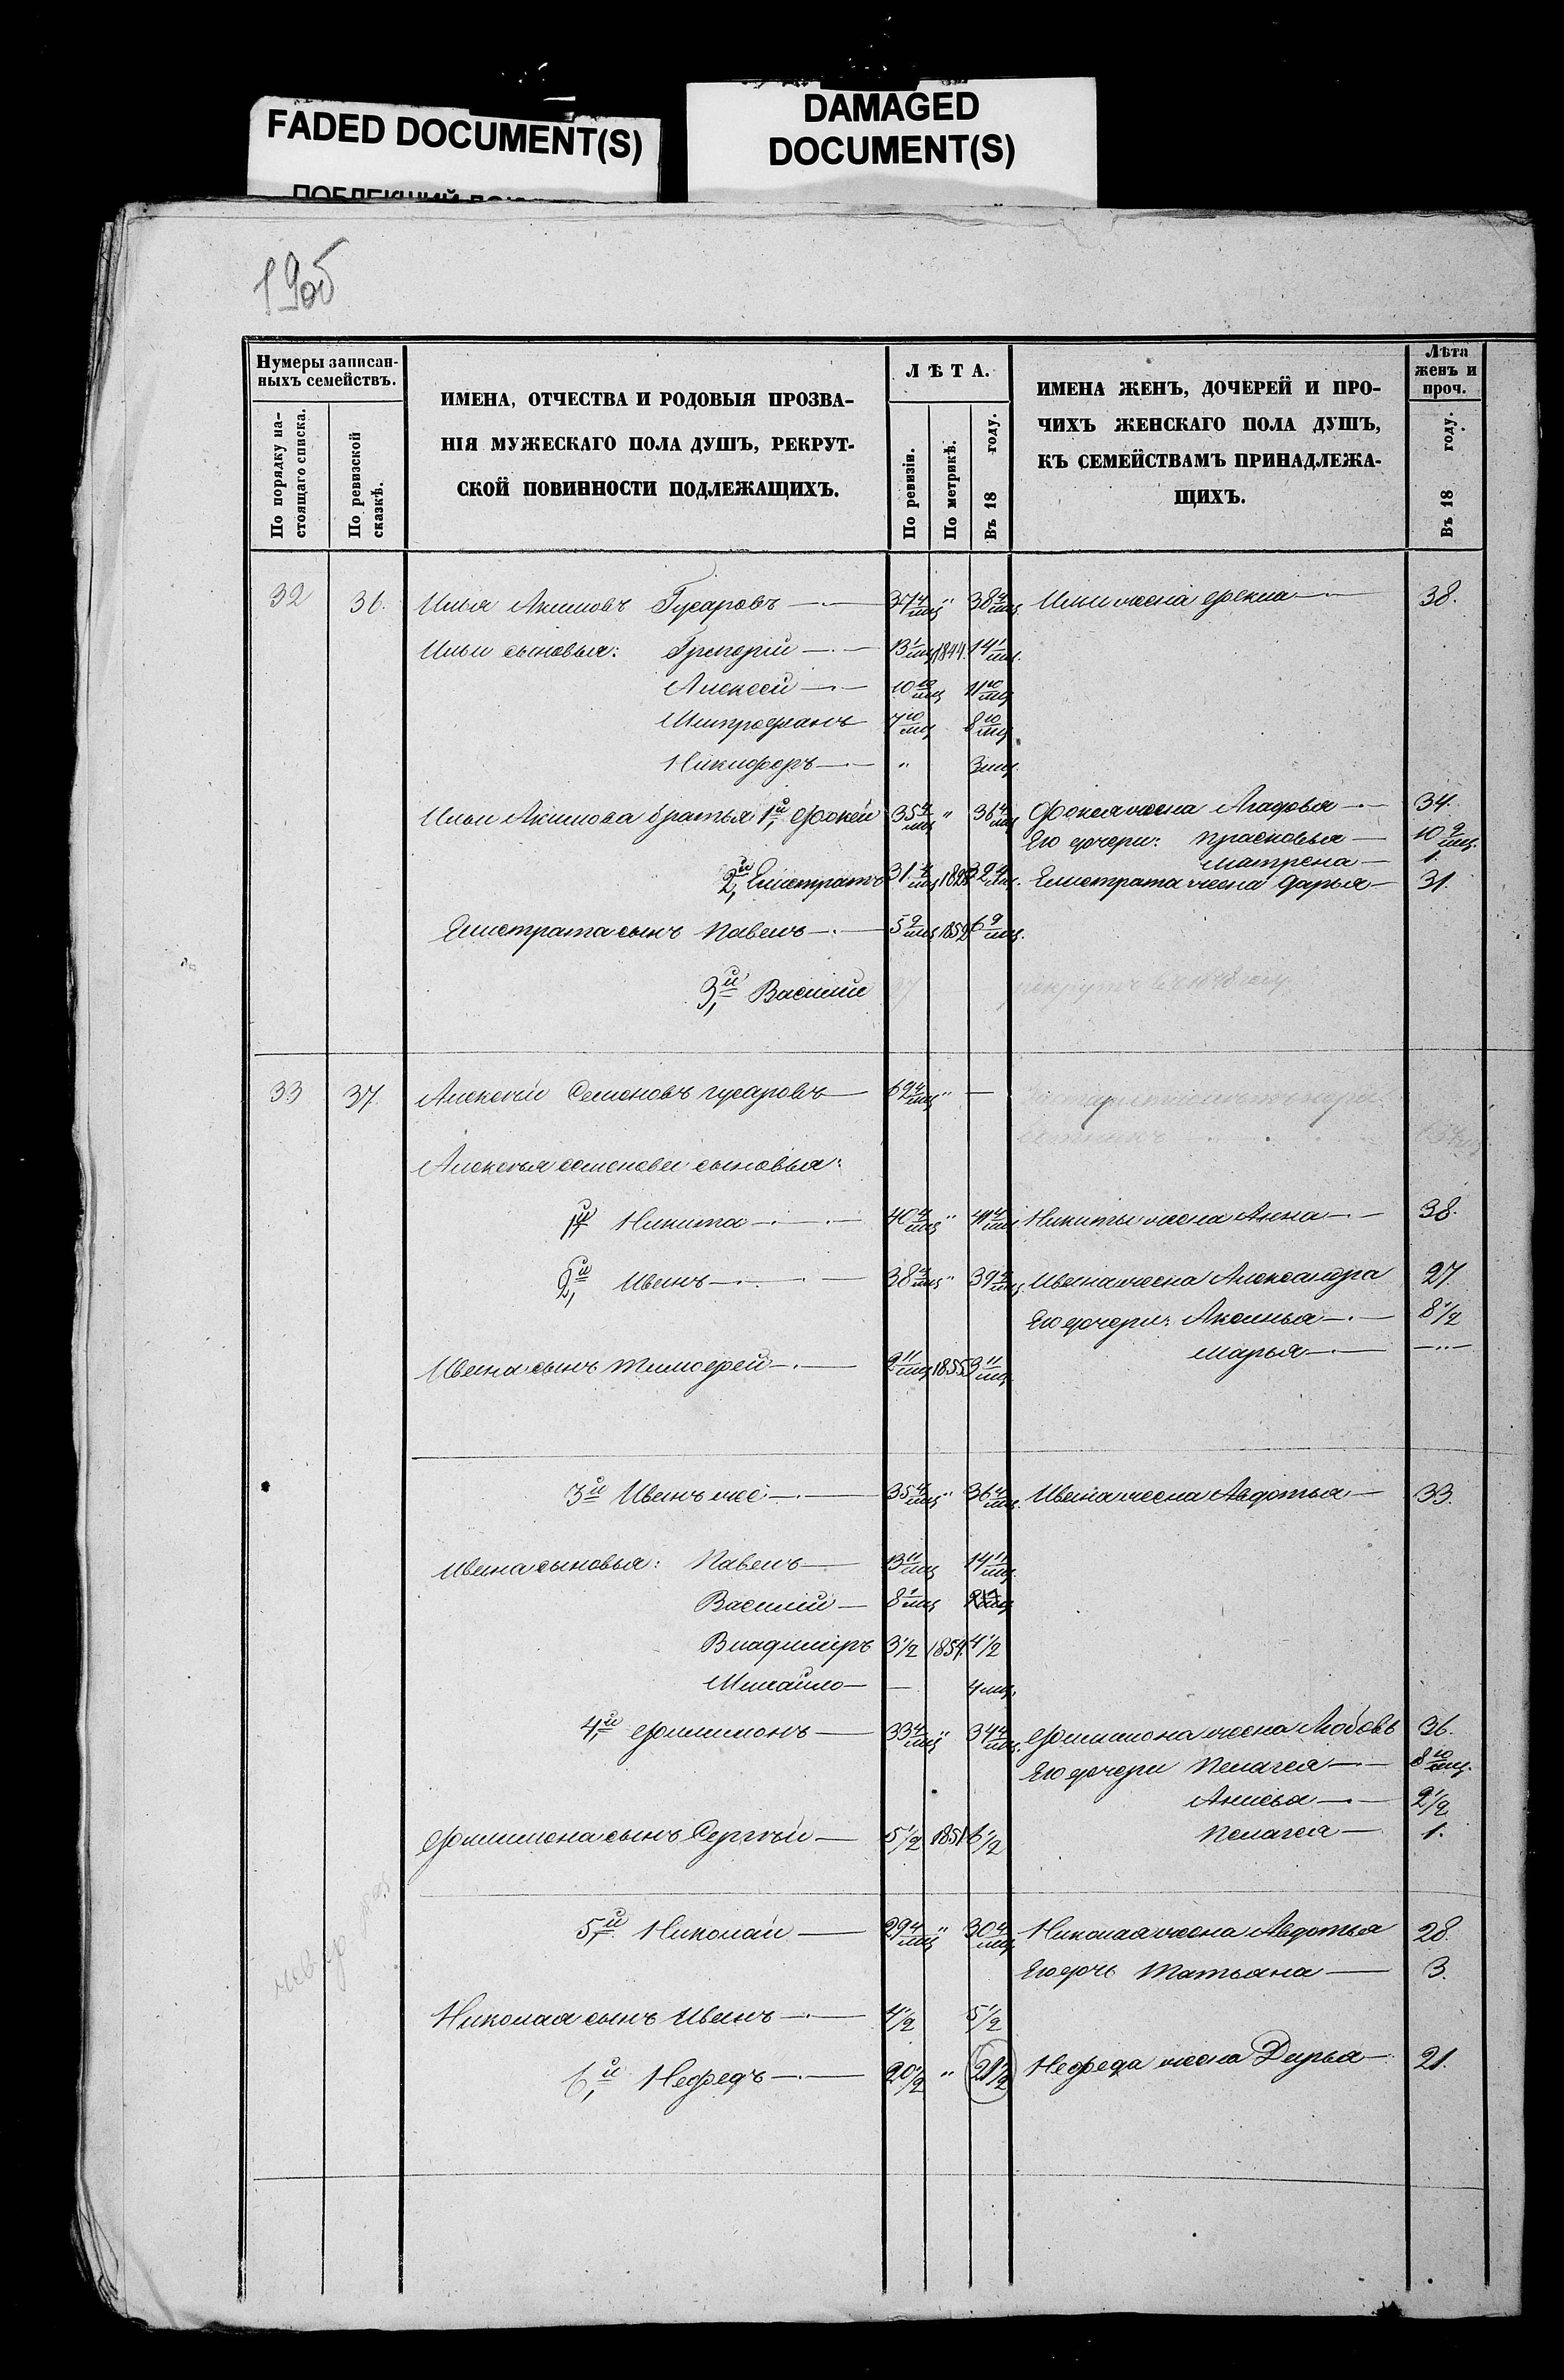 FADED DOCUMENT(S)
DAMAGED
DOCUMENT(S)
19об
Нумеры записан-
ныхъ семействъ.
По порядку на-
стоящаго списка.
По ревизской
сказкѣ.
ИМЕНА, ОТЧЕСТВА И РОДОВЫЯ ПРОЗВА-
НІЯ МУЖЕСКАГО ПОЛА ДУШЪ, РЕКРУТ-
СКОЙ ПОВИННОСТИ ПОДЛЕЖАЩИХЪ.
ЛѢТА.
По ревизіи.
По метрикѣ.
Въ 18 году.
ИМЕНА ЖЕНЪ, ДОЧЕРЕЙ И ПРО-
ЧИХЪ ЖЕНСКАГО ПОЛА ДУШЪ,
КЪ СЕМЕЙСТВАМЪ ПРИНАДЛЕЖА-
ЩИХЪ.
Лѣта
женъ и
проч.
Въ 18 году.
32 36. Илья Акимовъ Гусаровъ 37 4/мц " 38 4/мц. Ильи жена Фекла 38.
Ильи сыновья: Григорій 13 1/мц 1844. 14 1/мц.
Алексей 10 10/мц 11 10/мц
Митрофанъ 7 10/мц 8 10/мц
Никифоръ " 3 мц.
Ильи Акимова братья 1й Фокей 35 4/мц " 36 4/мц Фокея жена Агафья 34.
Его дочери: Прасковья 10 9/мц.
Матрена 1.
2й Елистратъ 31 4/мц 32 4/мц. Елистрата жена Дарья 31.
Елистрата сынъ Павелъ 5 9/мц 1852 6 9/мц.
3й Василій 27 рекрутъ въ 1848 году
33 37 Алексѣй Семеновъ Гусаровъ 69 4/мц " —
Алексѣя Семенова сыновья:
1й Никита 40 4/мц " 41 4/мц Никиты жена Анна 38.
2й Иванъ 38 4/мц " 39 4/мц. Ивана жена Александра 27.
Его дочери: Аксинья 8 1/2
Марья —"—
Ивана сынъ Тимофей 2 11/мц 1855 3 11/мц
3й Иванъ же 35 4/мц " 36 4/мц. Ивана жена Авдотья 33.
Ивана сыновья: Павелъ 13 11/мц 14 11/мц.
Василій 8 1/мц
Владиміръ 3 1/2 1854. 4 1/2
Михайло — 4 мц.
4й Филимонъ 33 4/мц " 34 4/мц. Филимона жена Любовь 36.
Его дочери Пелагея 8 10/мц.
Анисья 2 1/2
Филимона сынъ Сергѣй 5 1/2 1851 6 1/2 Пелагея 1.
5й Николай 29 4/мц " 30 4/мц Николая жена Авдотья 28.
Его дочь Татьяна 3.
Николая сынъ Иванъ 4 1/2 5 1/2
6й Нефедъ 20 1/2 " 21 1/2 Нефеда жена Дарья 21.